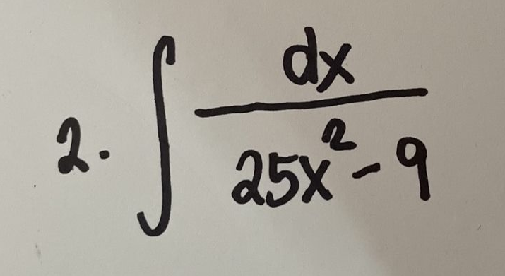 2. ∫ dx / 25x² - 9